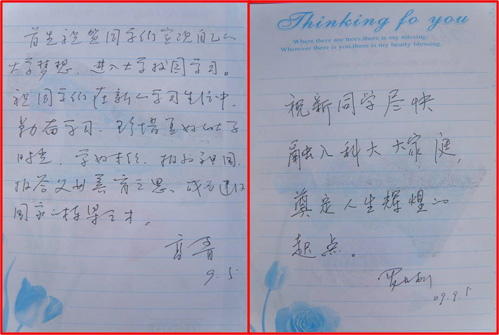 首先祝贺同学们实现自己的
大学梦想,进入大学校园学习。
祝同学们在新的学习生活中,
勤奋学习,珍惜美好的大学
时光,学好本领,报效祖国,
报答父母养育之恩,成为建设
国家的栋梁之才。
9.5
Thinking fo you
Where there are lines, there is my missing.
Wherever there is you, there is my hearty blessing.
祝新同学尽快
融入科大大家庭,
奠定人生辉煌的
起点。
09.9.5